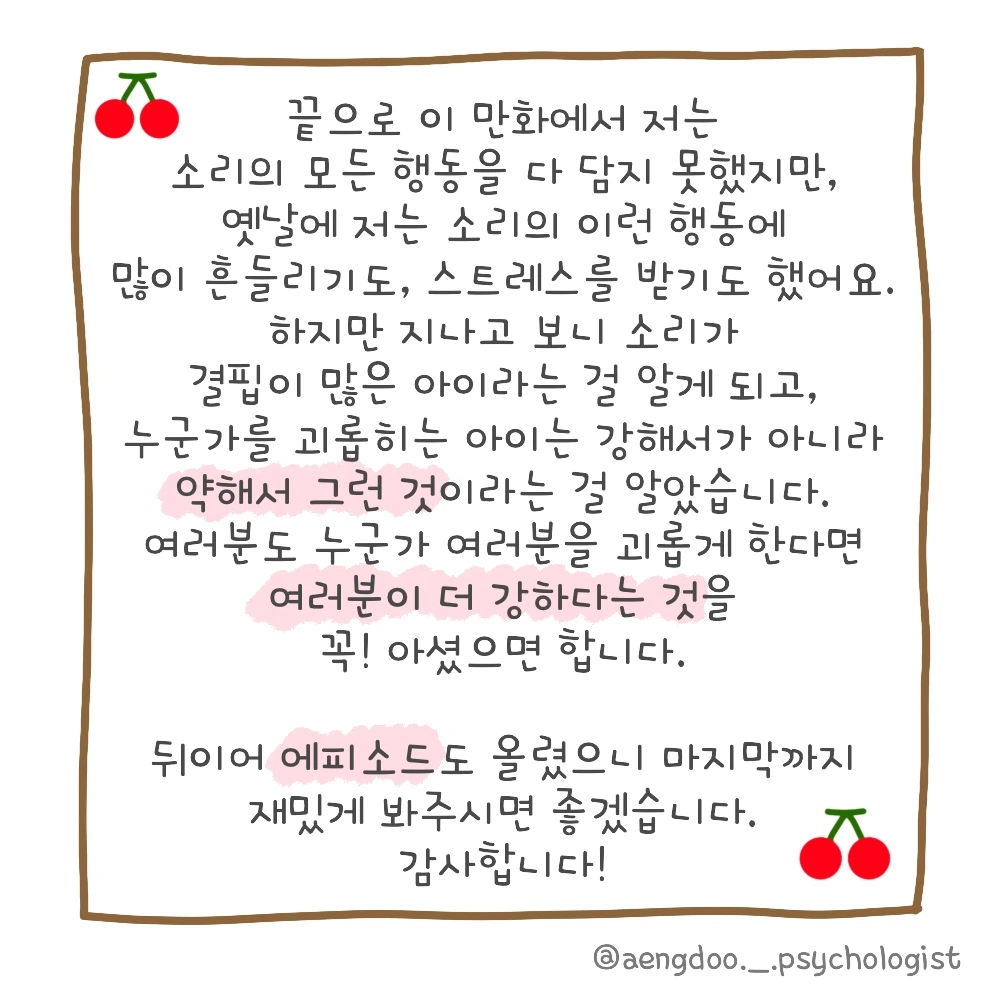 끝으로 이 만화에서 저는
소리의 모든 행동을 다 담지 못했지만,
옛날에 저는 소리의 이런 행동에
많이 흔들리기도, 스트레스를 받기도 했어요.
하지만 지나고 보니 소리가
결핍이 많은 아이라는 걸 알게 되고,
누군가를 괴롭히는 아이는 강해서가 아니라
약해서 그런 것이라는 걸 알았습니다.
여러분도 누군가 여러분을 괴롭게 한다면
여러분이 더 강하다는 것을
꼭! 아셨으면 합니다.
뒤이어 에피소드도 올렸으니 마지막까지
재밌게 봐주시면 좋겠습니다.
감사합니다!
@aengdoo._.psychologist